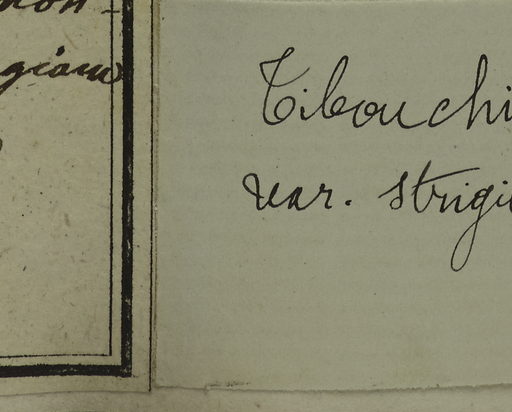 giam
Tibouchi
var. strigi